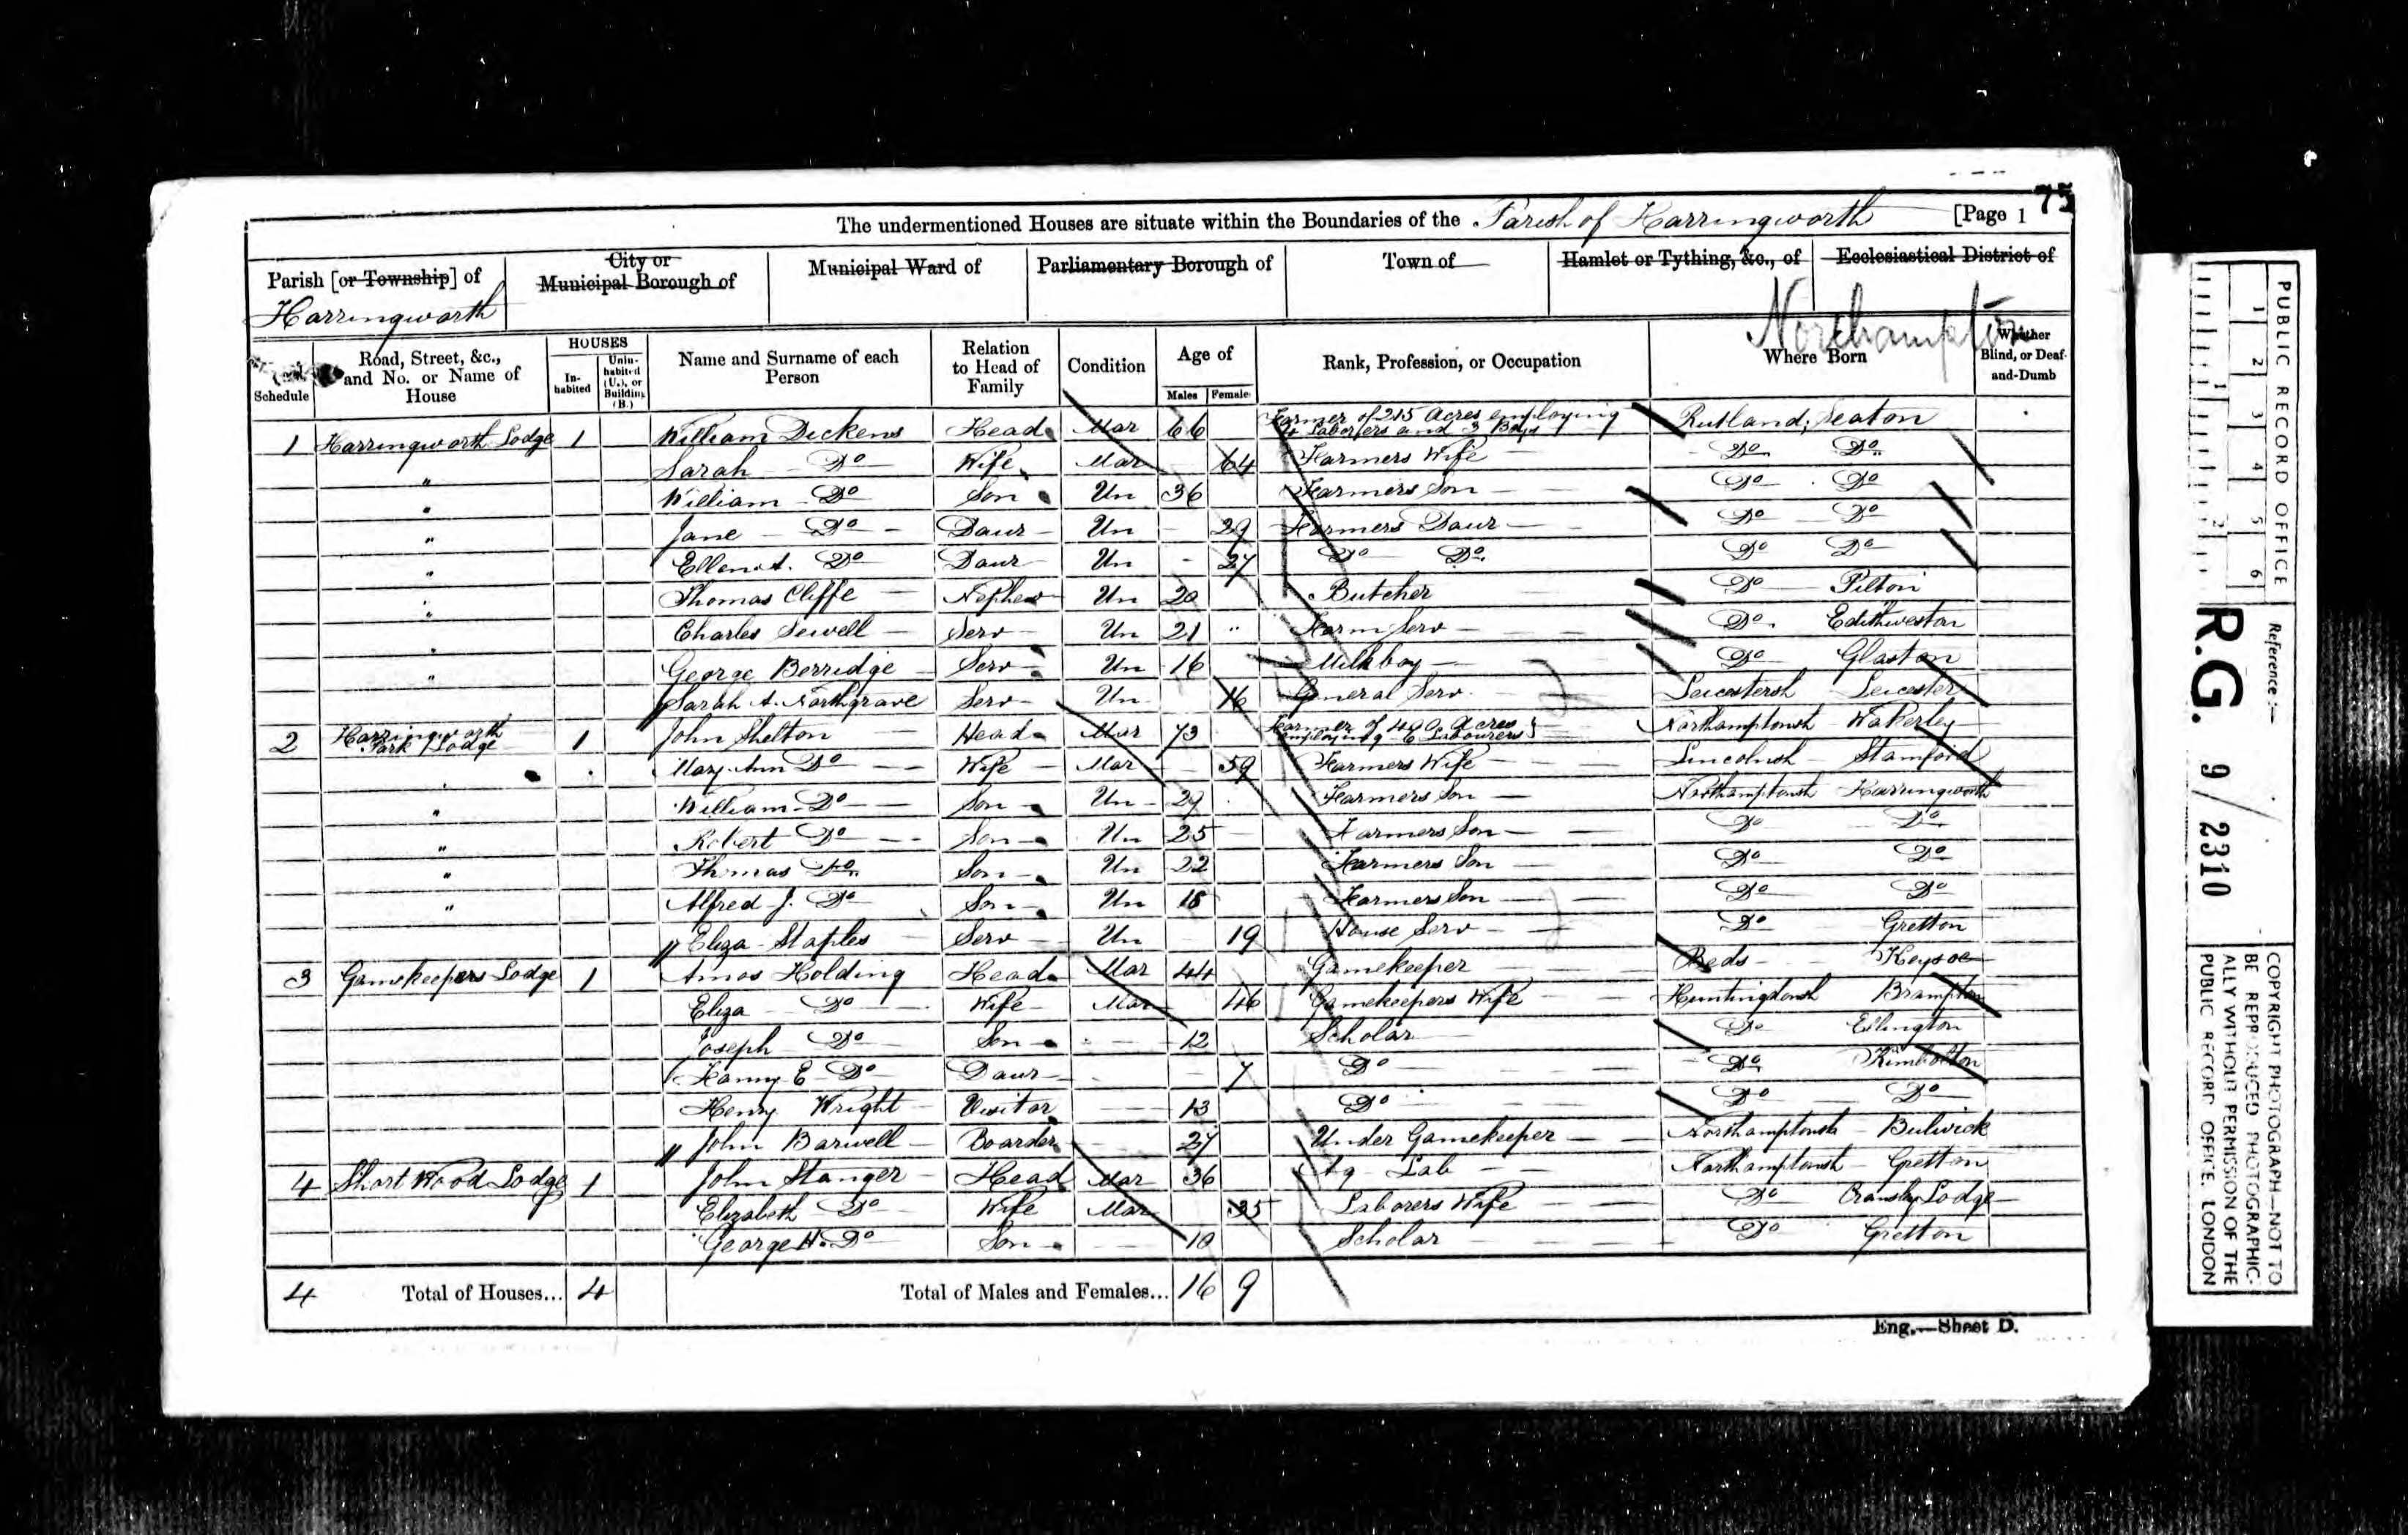 75
The undermentioned Houses are situate within the Boundaries of the Parish of Harringworth [Page 1
Parish [or Township] of Harringworth
City or Municipal Borough of
Municipal Ward of
Parliamentary Borough of
Town of
Hamlet or Tything, &c., of
Ecclesiastical District of
Northampton
Schedule
Road, Street, &c., and No. or Name of House
HOUSES
In-habited
Uninhabited (U.), or Building (B.)
Name and Surname of each Person
Relation to Head of Family
Condition
Age of
Males Females
Rank, Profession, or Occupation
Where Born
Whether Blind, or Deaf-and-Dumb
1 Harringworth Lodge 1 William Dickens Head Mar 66 Farmer of 215 Acres employing 4 Laborers and 3 Boys Rutland; Seaton
" Sarah Do Wife Mar 64 Farmers Wife Do Do
" William Do Son Un 36 Farmers Son Do Do
" Jane Do Daur Un 29 Farmers Daur Do Do
" Ellen A. Do Daur Un 27 Do Do Do Do
" Thomas Cliffe Nephew Un 20 Butcher Do Pilton
" Charles Sewell Serv Un 21 " Farm Serv Do Edithweston
" George Berridge Serv Un 16 Milkboy Do Glaston
Sarah A. Northgrave Serv Un 16 General Serv Leicestersh Leicester
2 Harringworth Park Lodge 1 John Shelton Head Mar 73 Farmer of 400 Acres employing 6 Labourers Northamptonsh Wakerley
Mary Ann Do Wife Mar 59 Farmers Wife Lincolnsh Stamford
" William Do Son Un 29 Farmers Son Northamptonsh Harringworth
" Robert Do Son Un 25 Farmers Son Do Do
" Thomas Do Son Un 22 Farmers Son Do Do
" Alfred J. Do Son Un 18 Farmers Son Do Do
Eliza Staples Serv Un 19 House Serv Do Gretton
3 Gamekeepers Lodge 1 Amos Holding Head Mar 44 Gamekeeper Beds Keysoe
Eliza Do Wife Mar 46 Gamekeepers Wife Huntingdonsh Brampton
Joseph Do Son 12 Scholar Do Ellington
Fanny E Do Daur 7 Do Do Kimbolton
Henry Wright Visitor 13 Do Do Do
John Barwell Boarder 27 Under Gamekeeper Northamptonsh Bulwick
4 Short Wood Lodge 1 John Stanger Head Mar 36 Ag Lab Northamptonsh Gretton
Elizabeth Do Wife Mar 35 Laborers Wife Do Lodge
George H. Do Son 10 Scholar Do Gretton
4 Total of Houses... 4 Total of Males and Females... 16 9
Eng.—Sheet D.
PUBLIC RECORD OFFICE
1 2 3 4 5 6
1 2
Reference:—
R.G. 9/2310
COPYRIGHT PHOTOGRAPH—NOT TO
BE REPRODUCED PHOTOGRAPHIC-
ALLY WITHOUT PERMISSION OF THE
PUBLIC RECORD OFFICE, LONDON